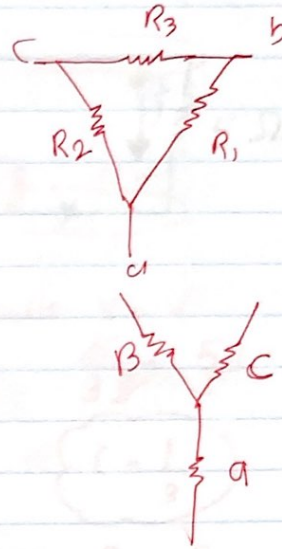 R3
C
b
R2
R1
a
B
C
a